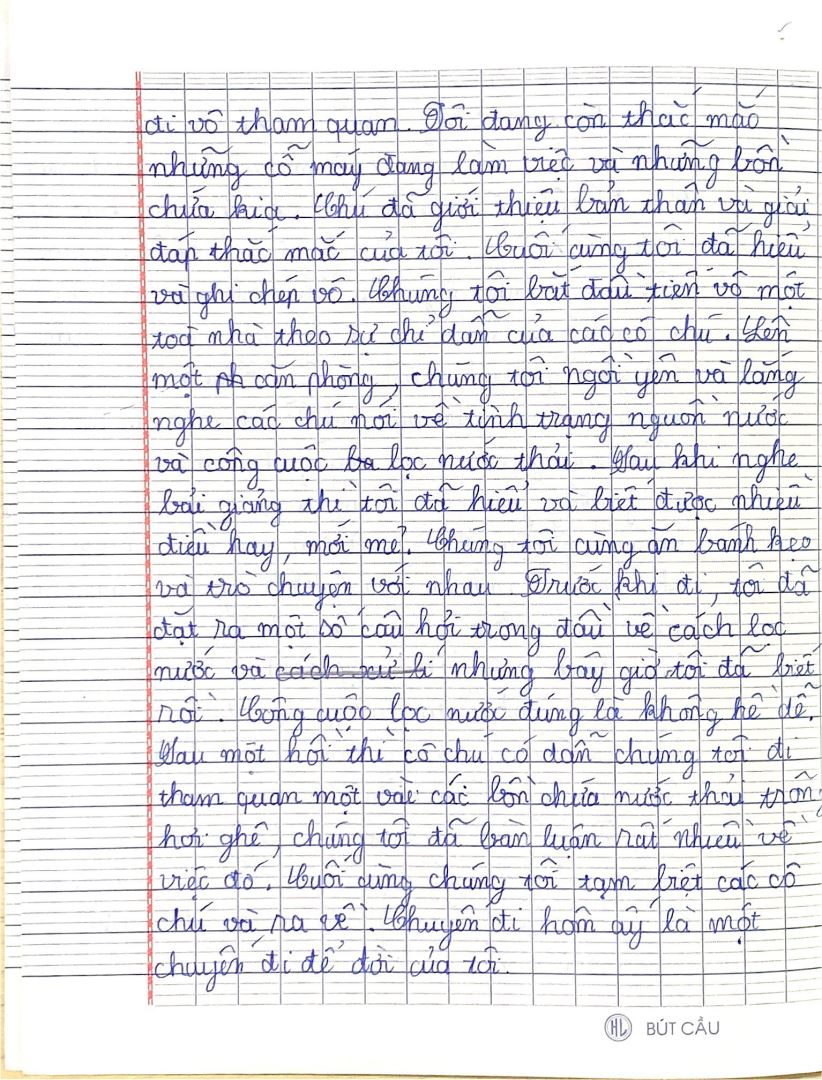 đi vô tham quan. Tôi đang còn thắc mắc
những cỗ máy đang làm việc và những bồn
chứa kia. Chú đã giới thiệu bản thân và giải
đáp thắc mắc của tôi. Cuối cùng tôi đã hiểu
và ghi chép vô. Chúng tôi bắt đầu tiến vô một
toà nhà theo sự chỉ dẫn của các cô chú. Lên
một căn phòng, chúng tôi ngồi yên và lắng
nghe các chú nói về tình trạng nguồn nước
và công cuộc lọc nước thải. Sau khi nghe
bài giảng thì tôi đã hiểu và biết được nhiều
điều hay, mới mẻ. Chúng tôi cùng ăn bánh kẹo
và trò chuyện với nhau. Trước khi đi, tôi đã
đặt ra một số câu hỏi trong đầu về cách lọc
nước và cách xử lí nhưng bây giờ tôi đã biết
rồi. Công cuộc lọc nước đúng là không hề dễ.
Sau một hồi thì cô chú có dẫn chúng tôi đi
tham quan một vài các bồn chứa nước thải trông
hơi ghê, chúng tôi đã bàn luận rất nhiều về
việc đó. Cuối cùng chúng tôi tạm biệt các cô
chú và ra về. Chuyến đi hôm ấy là một
chuyến đi để đời của tôi.
HL BÚT CẦU